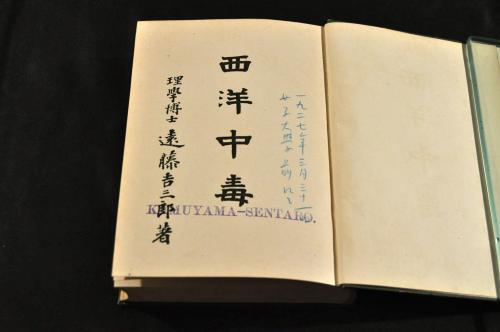 一九二七年三月三十一日
女子大學
西洋中毒
理學博士 遠藤吉三郎著
KEMUYAMA-SENTARO.